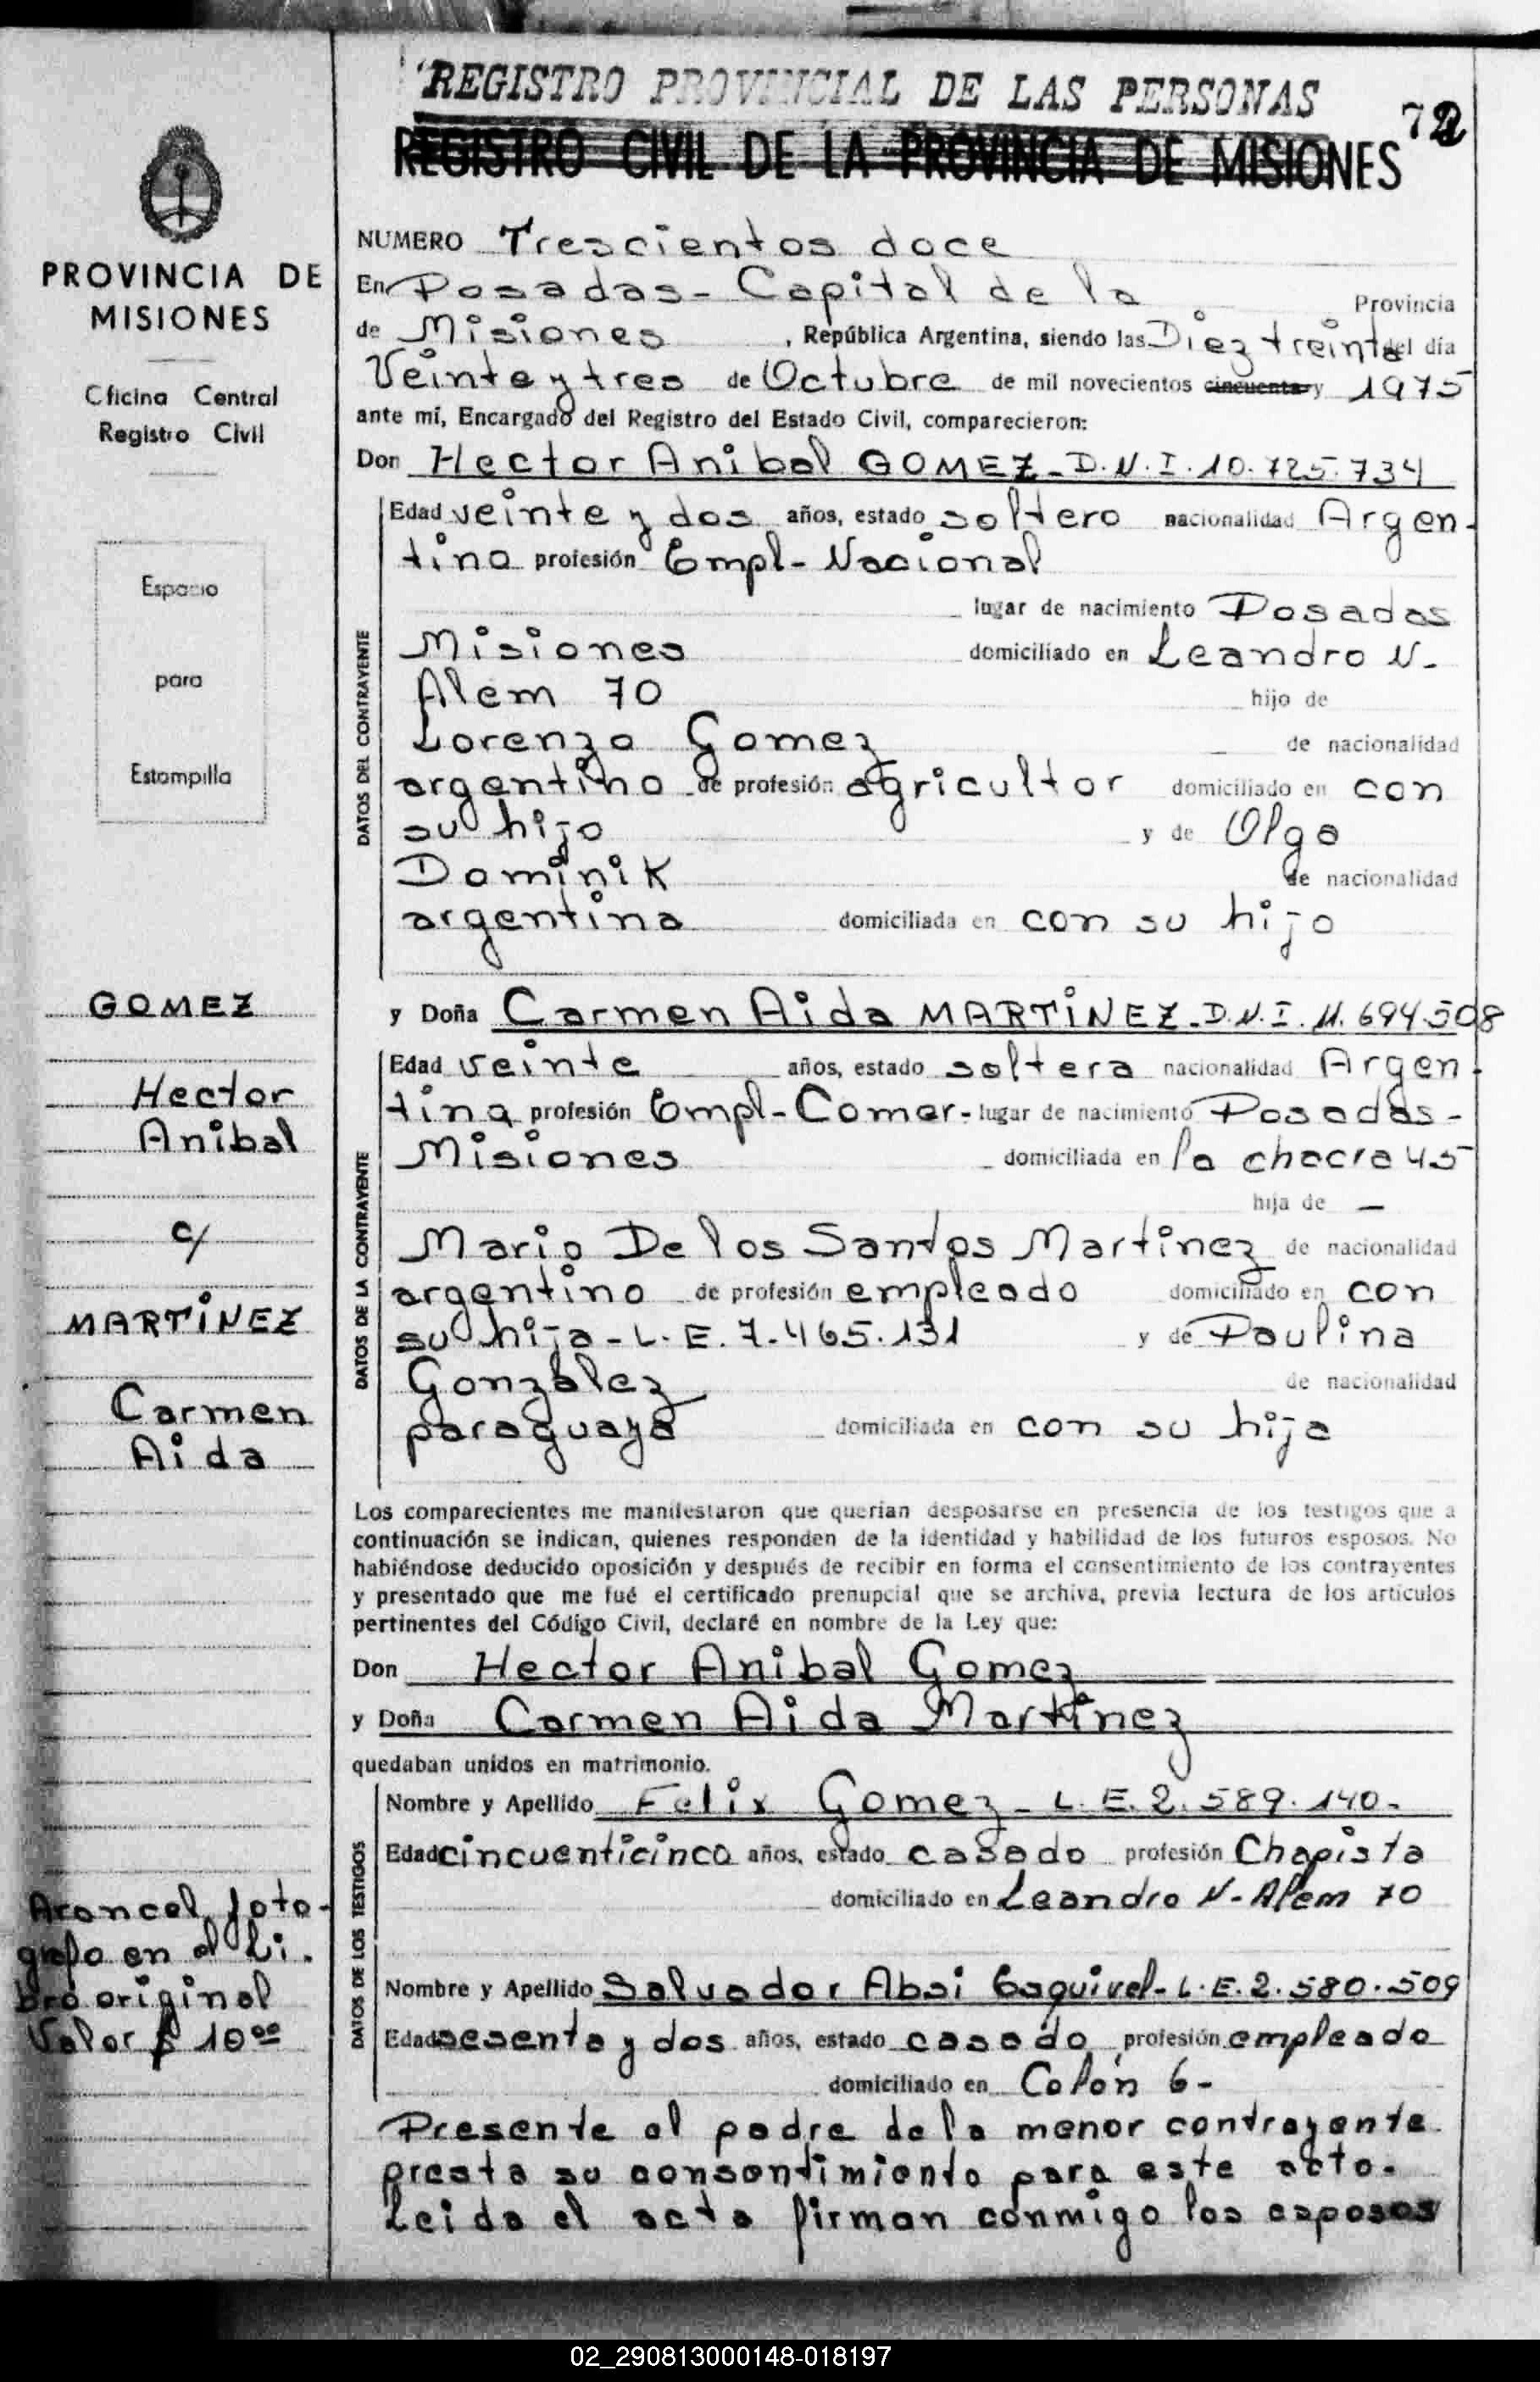 REGISTRO PROVINCIAL DE LAS PERSONAS
72
REGISTRO CIVIL DE LA PROVINCIA DE MISIONES
PROVINCIA DE
MISIONES
Oficina Central
Registro Civil
Espacio
para
Estampilla
GOMEZ
Hector
Anibal
c/
MARTINEZ
Carmen
Aida
Arancel foto-
grafo en el Li-
bro original
Valor $ 10.00
NUMERO Trescientos doce
En Posadas - Capital de la Provincia
de Misiones, República Argentina, siendo las Diez treinta del día
Veinte y tres de Octubre de mil novecientos cincuenta y 1975
ante mí, Encargado del Registro del Estado Civil, comparecieron:
Don Hector Anibal GOMEZ - D.N.I. 10.725.734
DATOS DEL CONTRAYENTE
Edad veinte y dos años, estado soltero nacionalidad Argen-
tina profesión Empl- Nacional
lugar de nacimiento Posadas
Misiones domiciliado en Leandro N-
Alem 70 hijo de
Lorenzo Gomez de nacionalidad
argentino de profesión agricultor domiciliado en con
su hijo y de Olga
Dominik de nacionalidad
argentina domiciliada en con su hijo
y Doña Carmen Aida MARTINEZ - D.N.I. 11.694508
DATOS DE LA CONTRAYENTE
Edad veinte años, estado soltera nacionalidad Argen-
tina profesión Empl- Comer- lugar de nacimiento Posadas -
Misiones domiciliada en la chacra 45
hija de —
Mario De los Santos Martinez de nacionalidad
argentino de profesión empleado domiciliado en con
su hija - L.E. 7.465.131 y de Paulina
Gonzalez de nacionalidad
paraguaya domiciliada en con su hija
Los comparecientes me manifestaron que querían desposarse en presencia de los testigos que a
continuación se indican, quienes responden de la identidad y habilidad de los futuros esposos. No
habiéndose deducido oposición y después de recibir en forma el consentimiento de los contrayentes
y presentado que me fué el certificado prenupcial que se archiva, previa lectura de los artículos
pertinentes del Código Civil, declaré en nombre de la Ley que:
Don Hector Anibal Gomez
y Doña Carmen Aida Martinez
quedaban unidos en matrimonio.
DATOS DE LOS TESTIGOS
Nombre y Apellido Felix Gomez - L.E. 2.589.140-
Edad cincuenticinco años, estado casado profesión Chapista
domiciliado en Leandro N- Alem 70
Nombre y Apellido Salvador Absi Esquivel - L.E. 2.580.509
Edad sesenta y dos años, estado casado, profesión empleado
domiciliado en Colón 6-
Presente el padre de la menor contrayente
presta su consentimiento para este acto.
Leida el acta firman conmigo los esposos
02_290813000148-018197